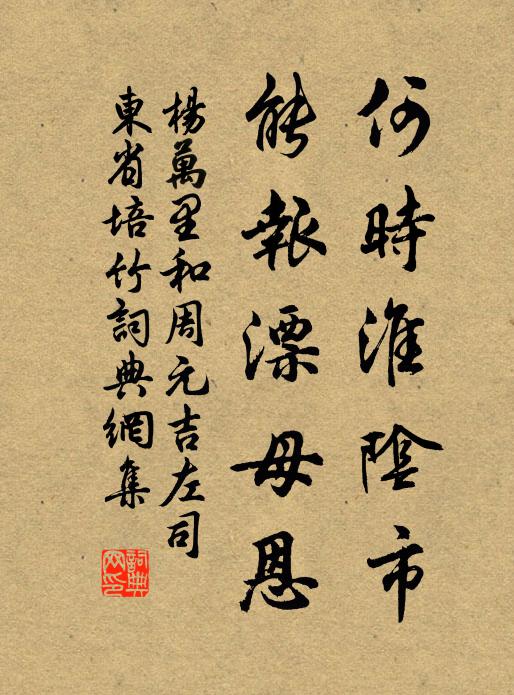 何時淮陰市
能報漂母恩
楊萬里和周元吉左司
東省培竹詞典網集
詞典網印